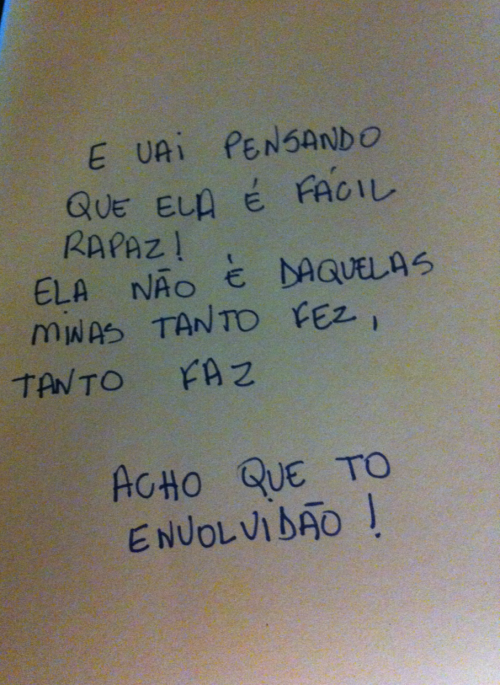 E VAi PENSANDO
QUE ELA É FÁCIL
RAPAZ!
ELA NÃO È DAQUELAS
MINAS TANTO FEZ,
TANTO FAZ
ACHO QUE TO
ENVOLVIDÃO!